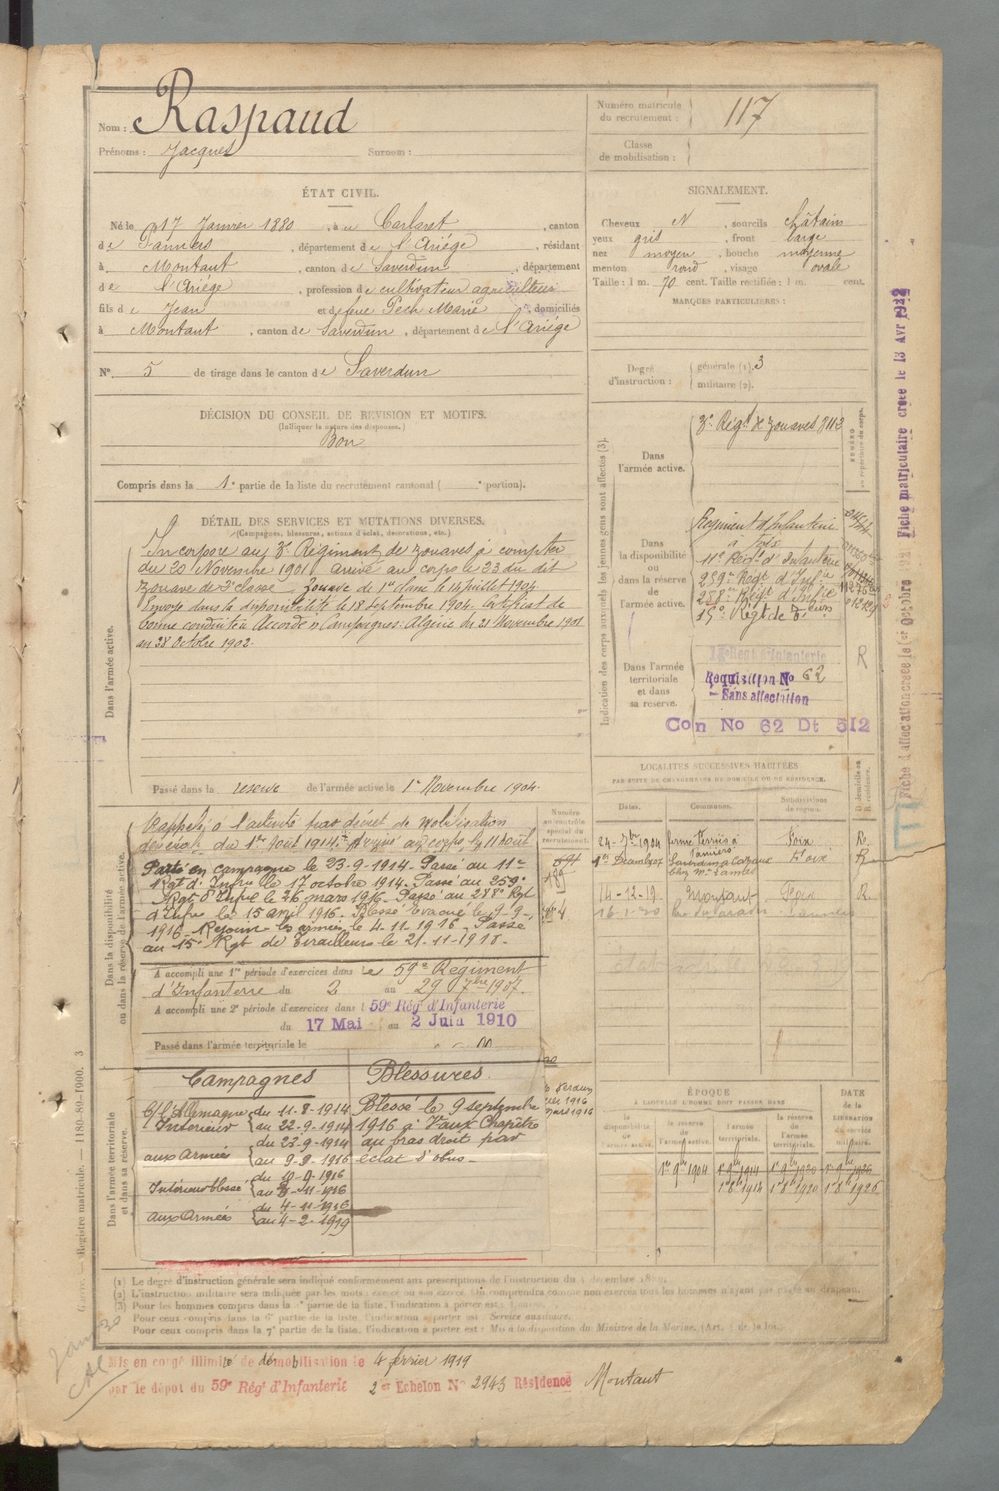 Nom : Raspaud
Prénoms : Jacques Surnom :
Numéro matricule du recrutement : 117
Classe de mobilisation :
ÉTAT CIVIL.
Né le 17 Janvier 1880, à Carlaret, canton
de Pamiers, département de l'Ariège, résidant
à Montaut, canton de Saverdun, département
de l'Ariège, profession de cultivateur agriculteur
fils de Jean et de feue Pech Marie, domiciliés
à Montaut, canton de Saverdun, département de l'Ariège
N° 5 de tirage dans le canton de Saverdun
SIGNALEMENT.
Cheveux N, sourcils châtains
yeux gris, front large
nez moyen, bouche moyenne
menton rond, visage ovale
Taille : 1 m. 70 cent. Taille rectifiée : 1 m. cent.
MARQUES PARTICULIÈRES :
Degré d'instruction : générale (1). 3
militaire (2).
DÉCISION DU CONSEIL DE REVISION ET MOTIFS.
(Indiquer la nature des dispenses.)
Bon
Compris dans la 1e partie de la liste du recrutement cantonal ( e portion).
DÉTAIL DES SERVICES ET MUTATIONS DIVERSES.
(Campagnes, blessures, actions d'éclat, décorations, etc.)
Dans l'armée active.
Incorporé au 3e Régiment de zouaves à compter
du 20 Novembre 1901 arrivé au corps le 23 du dit
zouave de 2e classe. Zouave de 1ere classe le 14 juillet 1904
Envoyé dans la disponibilité le 18 septembre 1904. Certificat de
bonne conduite Accordé. Campagnes: Algérie du 21 Novembre 1901
au 28 Octobre 1902.
Passé dans la réserve de l'armée active le 1er Novembre 1904.
Indication des corps auxquels les jeunes gens sont affectés (3).
Dans l'armée active.
3e Régt de zouaves
Dans la disponibilité ou dans la réserve de l'armée active.
Régiment d'Infanterie
à Foix
11e Régt d'Infanterie
259e Régt d'Infie
288e Régt d'Infie
15e Régt de Teurs
Dans l'armée territoriale et dans sa réserve.
Requisition No 62
Sans affectation
R
Con No 62 Dt 512
Fiche matriculaire créée le 13 Avr 1922
LOCALITÉS SUCCESSIVES HABITÉES
PAR SUITE DE CHANGEMENTS DE DOMICILE OU DE RÉSIDENCE.
Dates. Communes. Subdivisions de région. D. domicile ou R. résidence.
24-7bre 1904 Foix R.
Pamiers
Foix R
14-12-19 Montaut Foix R.
Dans la disponibilité ou dans la réserve de l'armée active.
Numéro au contrôle spécial du recrutement.
Rappelé à l'activité par décret de mobilisation
générale du 1er août 1914. Arrivé au corps le 11 Août
Parti en campagne le 23-9-1914. Passé au 11e
Rgt d'Infie le 17 octobre 1914. Passé au 259e
Rgt d'Infie le 26 mars 1916. Passé au 288e Rgt
d'Infie le 15 avril 1916. Blessé Evacué le 9-9-
1916. Rejoint les armées le 4-11-1916. Passé
au 15e Rgt de Tirailleurs le 21-11-1918.
A accompli une 1re période d'exercices dans le 59e Régiment
d'Infanterie du 2 au 29 7bre 1907.
A accompli une 2e période d'exercices dans l 59e Rég d'Infanterie
du 17 Mai au 2 Juin 1910
Passé dans l'armée territoriale le
Dans l'armée territoriale et dans sa réserve.
Campagnes Blessures.
C/ l'Allemagne du 11-8-1914 Blessé le 9 septembre
Intérieur au 22-9-1914 1916 à Vaux Chapître
du 23-9-1914 au bras droit par
aux Armées au 9-9-1916 éclat d'obus.
du 10-9-1916
Intérieur blessé au 3-11-1916
du 4-11-1916
aux Armées au 4-2-1919
ÉPOQUE
À LAQUELLE L'HOMME DOIT PASSER DANS
la disponibilité de l'armée active. la réserve de l'armée active. l'armée territoriale. la réserve de l'armée territoriale.
DATE de la LIBÉRATION du service militaire.
1er 9bre 1904 1er 9bre 1914 1er 9bre 1920 1er 9bre 1926
1er 8bre 1914 1er 8bre 1920 1er 8bre 1926
(1) Le degré d'instruction générale sera indiqué conformément aux prescriptions de l'instruction du
(2) L'instruction militaire sera indiquée par les mots : exercé ou non exercé. On comprendra comme non exercés tous les hommes n'ayant pas passé au drapeau.
(3) Pour les hommes compris dans la 1re partie de la liste, l'indication à porter est :
Pour ceux compris dans la 6e partie de la liste, l'indication à porter est : Service auxiliaire.
Pour ceux compris dans la 7e partie de la liste, l'indication à porter est : Mis à la disposition du Ministre de la Marine.
Mis en congé illimité de démobilisation le 4 février 1919
par le dépôt du 59e Rég d'Infanterie 2e Echelon N° 2943 Résidence Montaut